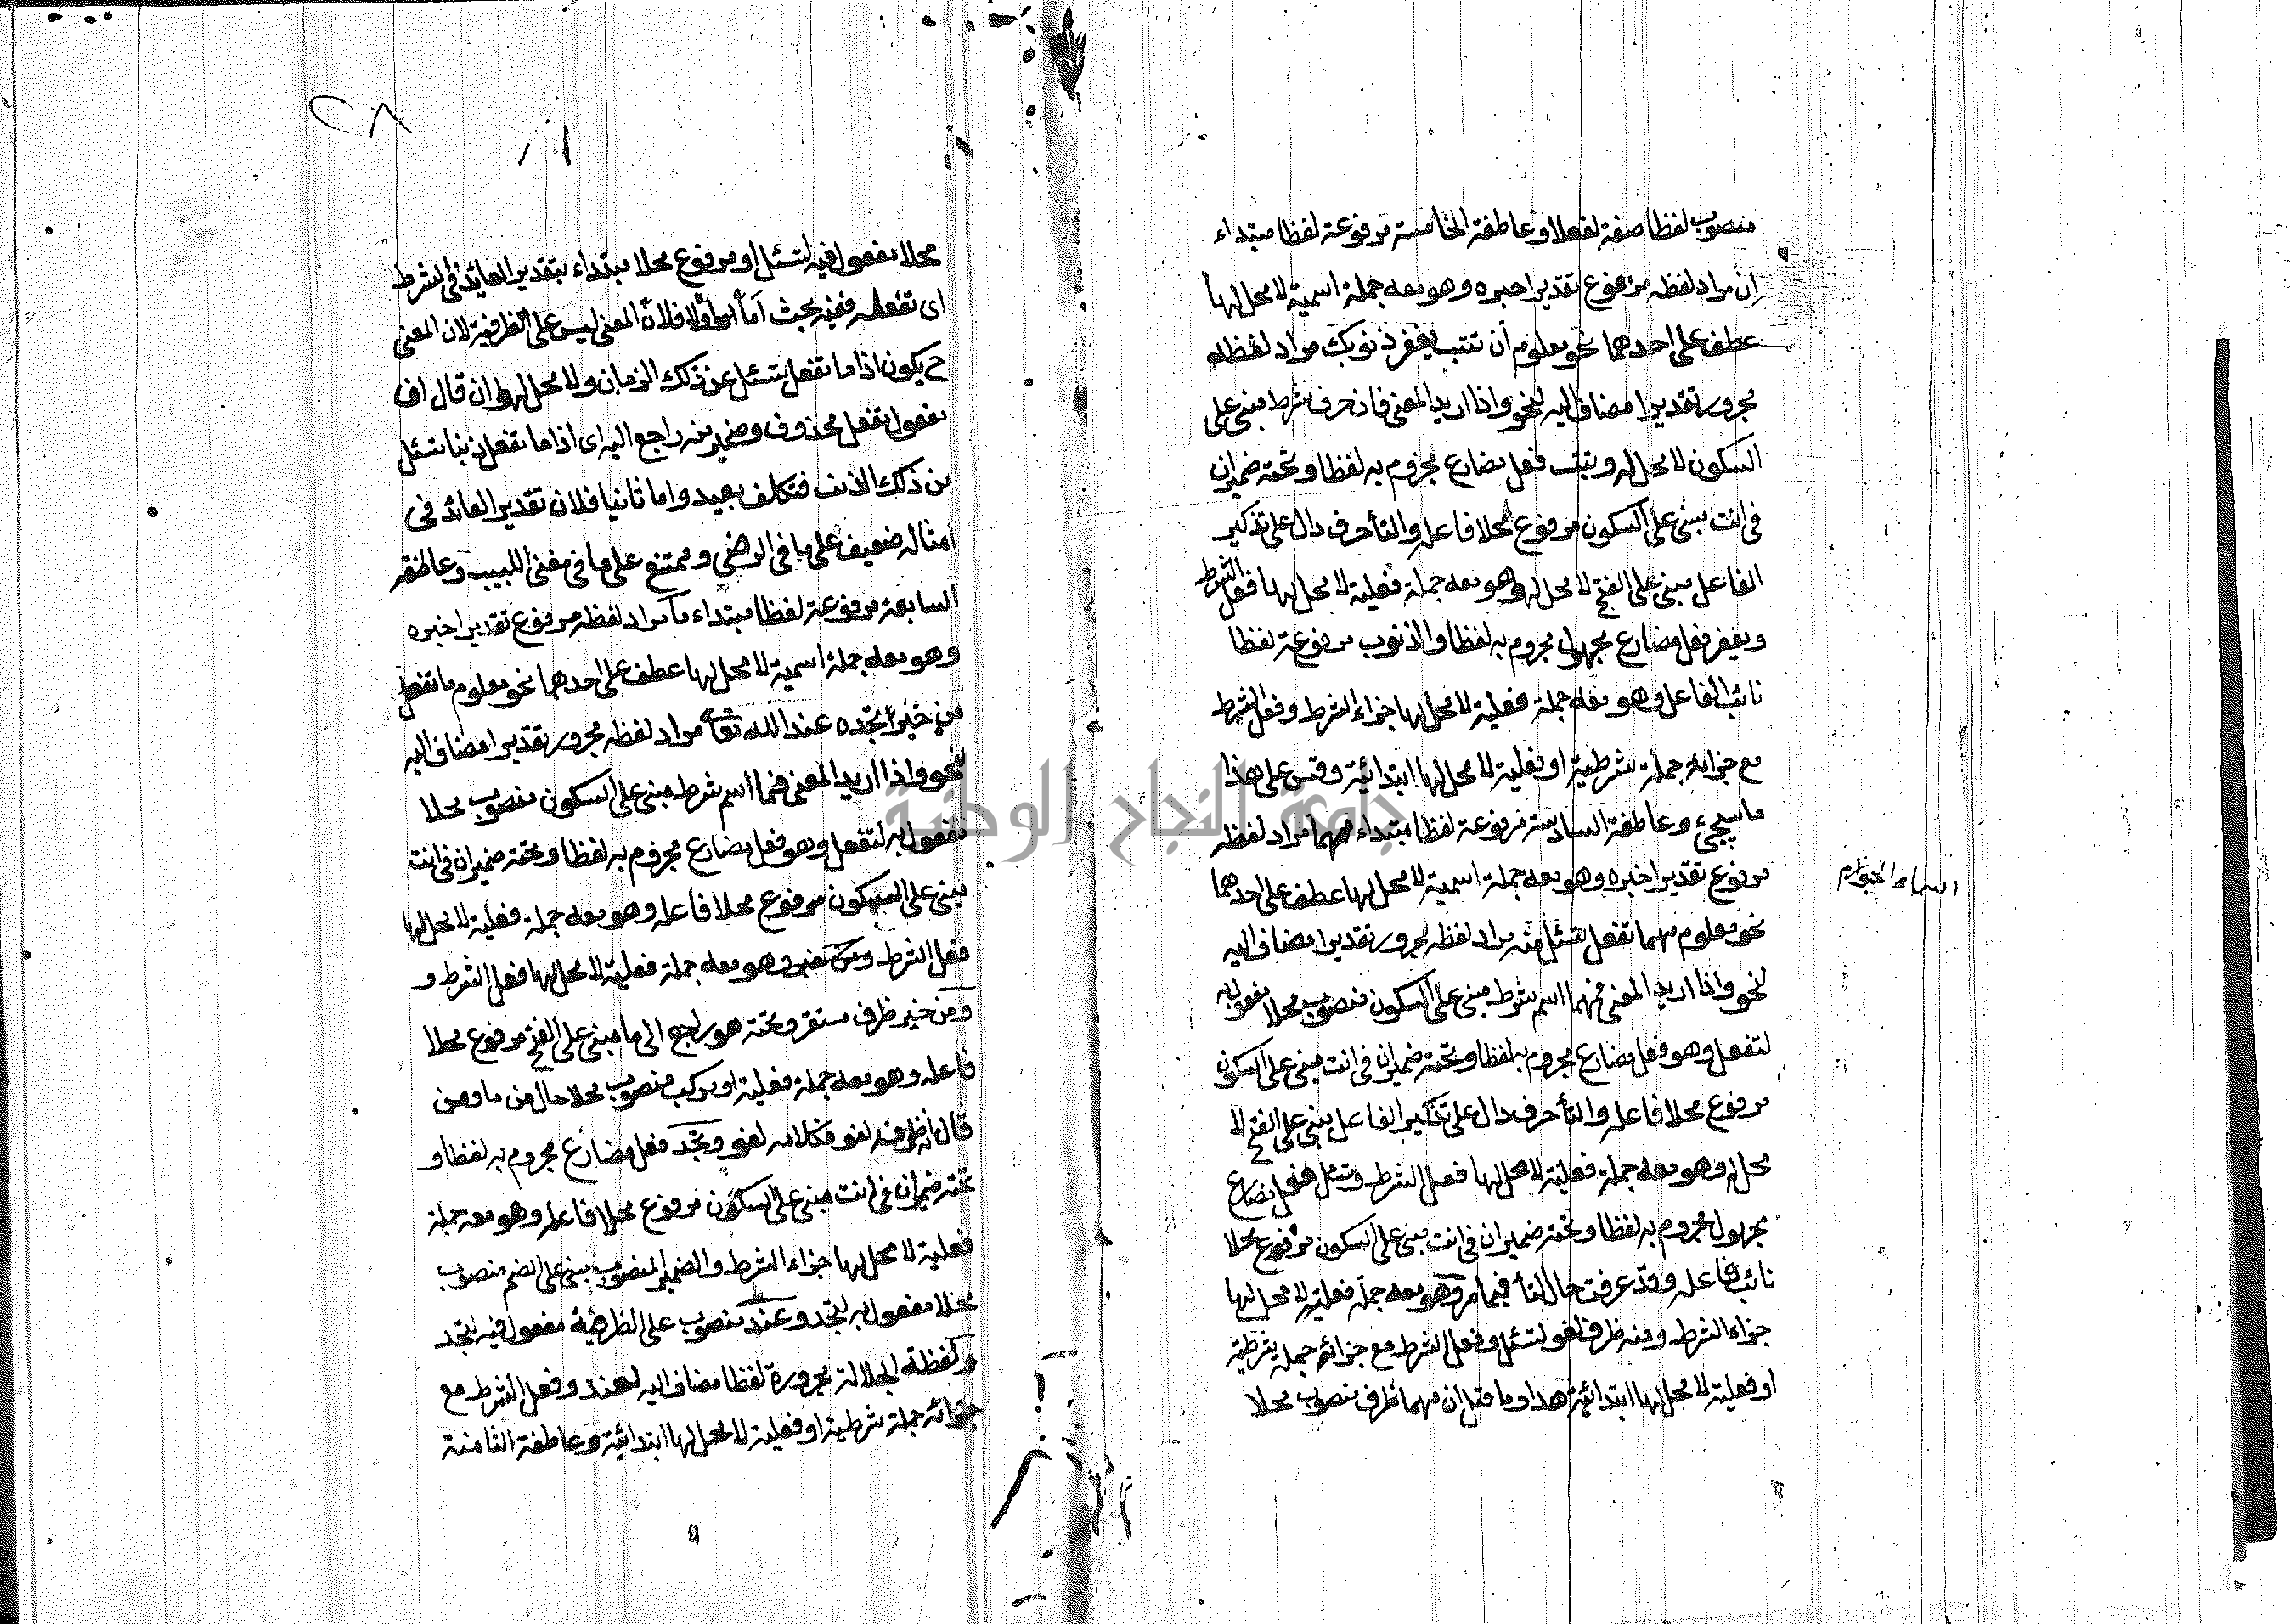 منصوب لفظا صفة لفعلا وعاطفة الخامسة مرفوعة لفظا مبتداء
ان مراد لفظه مرفوع تقديرا خبره وهو معه جملة اسمية لا محل لها
عطف على احدهما نحو معلوم أن تتب يغفر ذنوبك مراد لفظه
مجرور تقديرا مضاف اليه لنحو واذا اريد المعنى فان حرف شرط مبنى على
السكون لا محل له وتتب فعل مضارع مجزوم به لفظا وتحته ضمير ان
فى انت مبنى على السكون مرفوع محلا فاعله والتأ حرف دال على تذكير
الفاعل مبنى على الفتح لا محل له وهو معه جملة فعلية لا محل لها فعل الشرط
ويغفر فعل مضارع مجهول مجزوم به لفظا والذنوب مرفوعة لفظا
نائب الفاعل وهو معه جملة فعلية لا محل لها جزاء الشرط وفعل الشرط
مع جزائه جملة شرطية او فعلية لا محل لها ابتدائية وقس على هذا
ما سيجئ وعاطفة السادسة مرفوعة لفظا مبتداء مهما مراد لفظه
مرفوع تقديرا خبره وهو معه جملة اسمية لا محل لها عطف على احدهما
اسماء الجوازم
نحو معلوم مهما تفعل تسئل منه مراد لفظه مجرور تقديرا مضاف اليه
لنحو واذا اريد المعنى فمهما اسم شرط مبنى على السكون منصوب محلا مفعول به
لتفعل وهو فعل مضارع مجزوم به لفظا وتحته ضمير ان فى انت مبنى على السكون
مرفوع محلا فاعله والتأ حرف دال على تذكير الفاعل مبنى على الفتح لا
محل له وهو معه جملة فعلية لا محل لها فعل الشرط وتسئل فعل مضارع
مجهول مجزوم به لفظا وتحته ضمير ان فى انت مبنى على السكون مرفوع محلا
نائب فاعله وقد عرفت حال التأ فيما مر وهو معه جملة فعلية لا محل لها
جزاء الشرط ومنه ظرف لغو لتسئل وفعل الشرط مع جزائه جملة شرطية
او فعلية لا محل لها ابتدائية هذا وما قيل ان مهما ظرف منصوب محلا
٢٨
محلا مفعول فيه لتسئل او مرفوع محلا مبتداء بتقدير العائد فى الشرط
اى تفعله ففيه بحث أما أولا فلأن المعنى ليس على الظرفية لان المعنى
ح يكون اذا ما تفعل تسئل عن ذلك الزمان ولا محل لها وان قال ان
مفعول تفعل محذوف وضمير منه راجع اليه اى اذا ما تفعل ذنبا تسئل
من ذلك الذنب فتكلف بعيد واما ثانيا فلان تقدير العائد فى
امثاله ضعيف على ما فى الرضى وممتنع على ما فى مغنى اللبيب وعاطفة
السابعة مرفوعة لفظا مبتداء ما مراد لفظه مرفوع تقديرا خبره
وهو معه جملة اسمية لا محل لها عطف على احدهما نحو معلوم ما تفعل
من خير تجده عند الله تعا مراد لفظه مجرور تقديرا مضاف اليه
لنحو واذا اريد المعنى فما اسم شرط مبنى على السكون منصوب محلا
مفعول به لتفعل وهو فعل مضارع مجزوم به لفظا وتحته ضمير ان فى انت
مبنى على السكون مرفوع محلا فاعله وهو معه جملة فعلية لا محل لها
فعل الشرط وهو معه جملة فعلية لا محل لها فعل الشرط و
ومن خير ظرف مستقر وتحته هو راجع الى ما مبنى على الفتح مرفوع محلا
فاعله وهو معه جملة فعلية او مركب منصوب محلا حال من ما ومن
قال انه ظرف لغو فكلامه لغو وتجد فعل مضارع مجزوم به لفظا و
تحته ضمير ان فى انت مبنى على السكون مرفوع محلا فاعله وهو معه جملة
فعلية لا محل لها جزاء الشرط والضمير المنصوب مبنى على الضم منصوب
محلا مفعول به لتجد وعند منصوب على الظرفية مفعول فيه لتجد
ولفظة الجلالة مجرورة لفظا مضاف اليه لعند وفعل الشرط مع
جزائه جملة شرطية او فعلية لا محل لها ابتدائية وعاطفة الثامنة
جامعة النجاح الوطنية